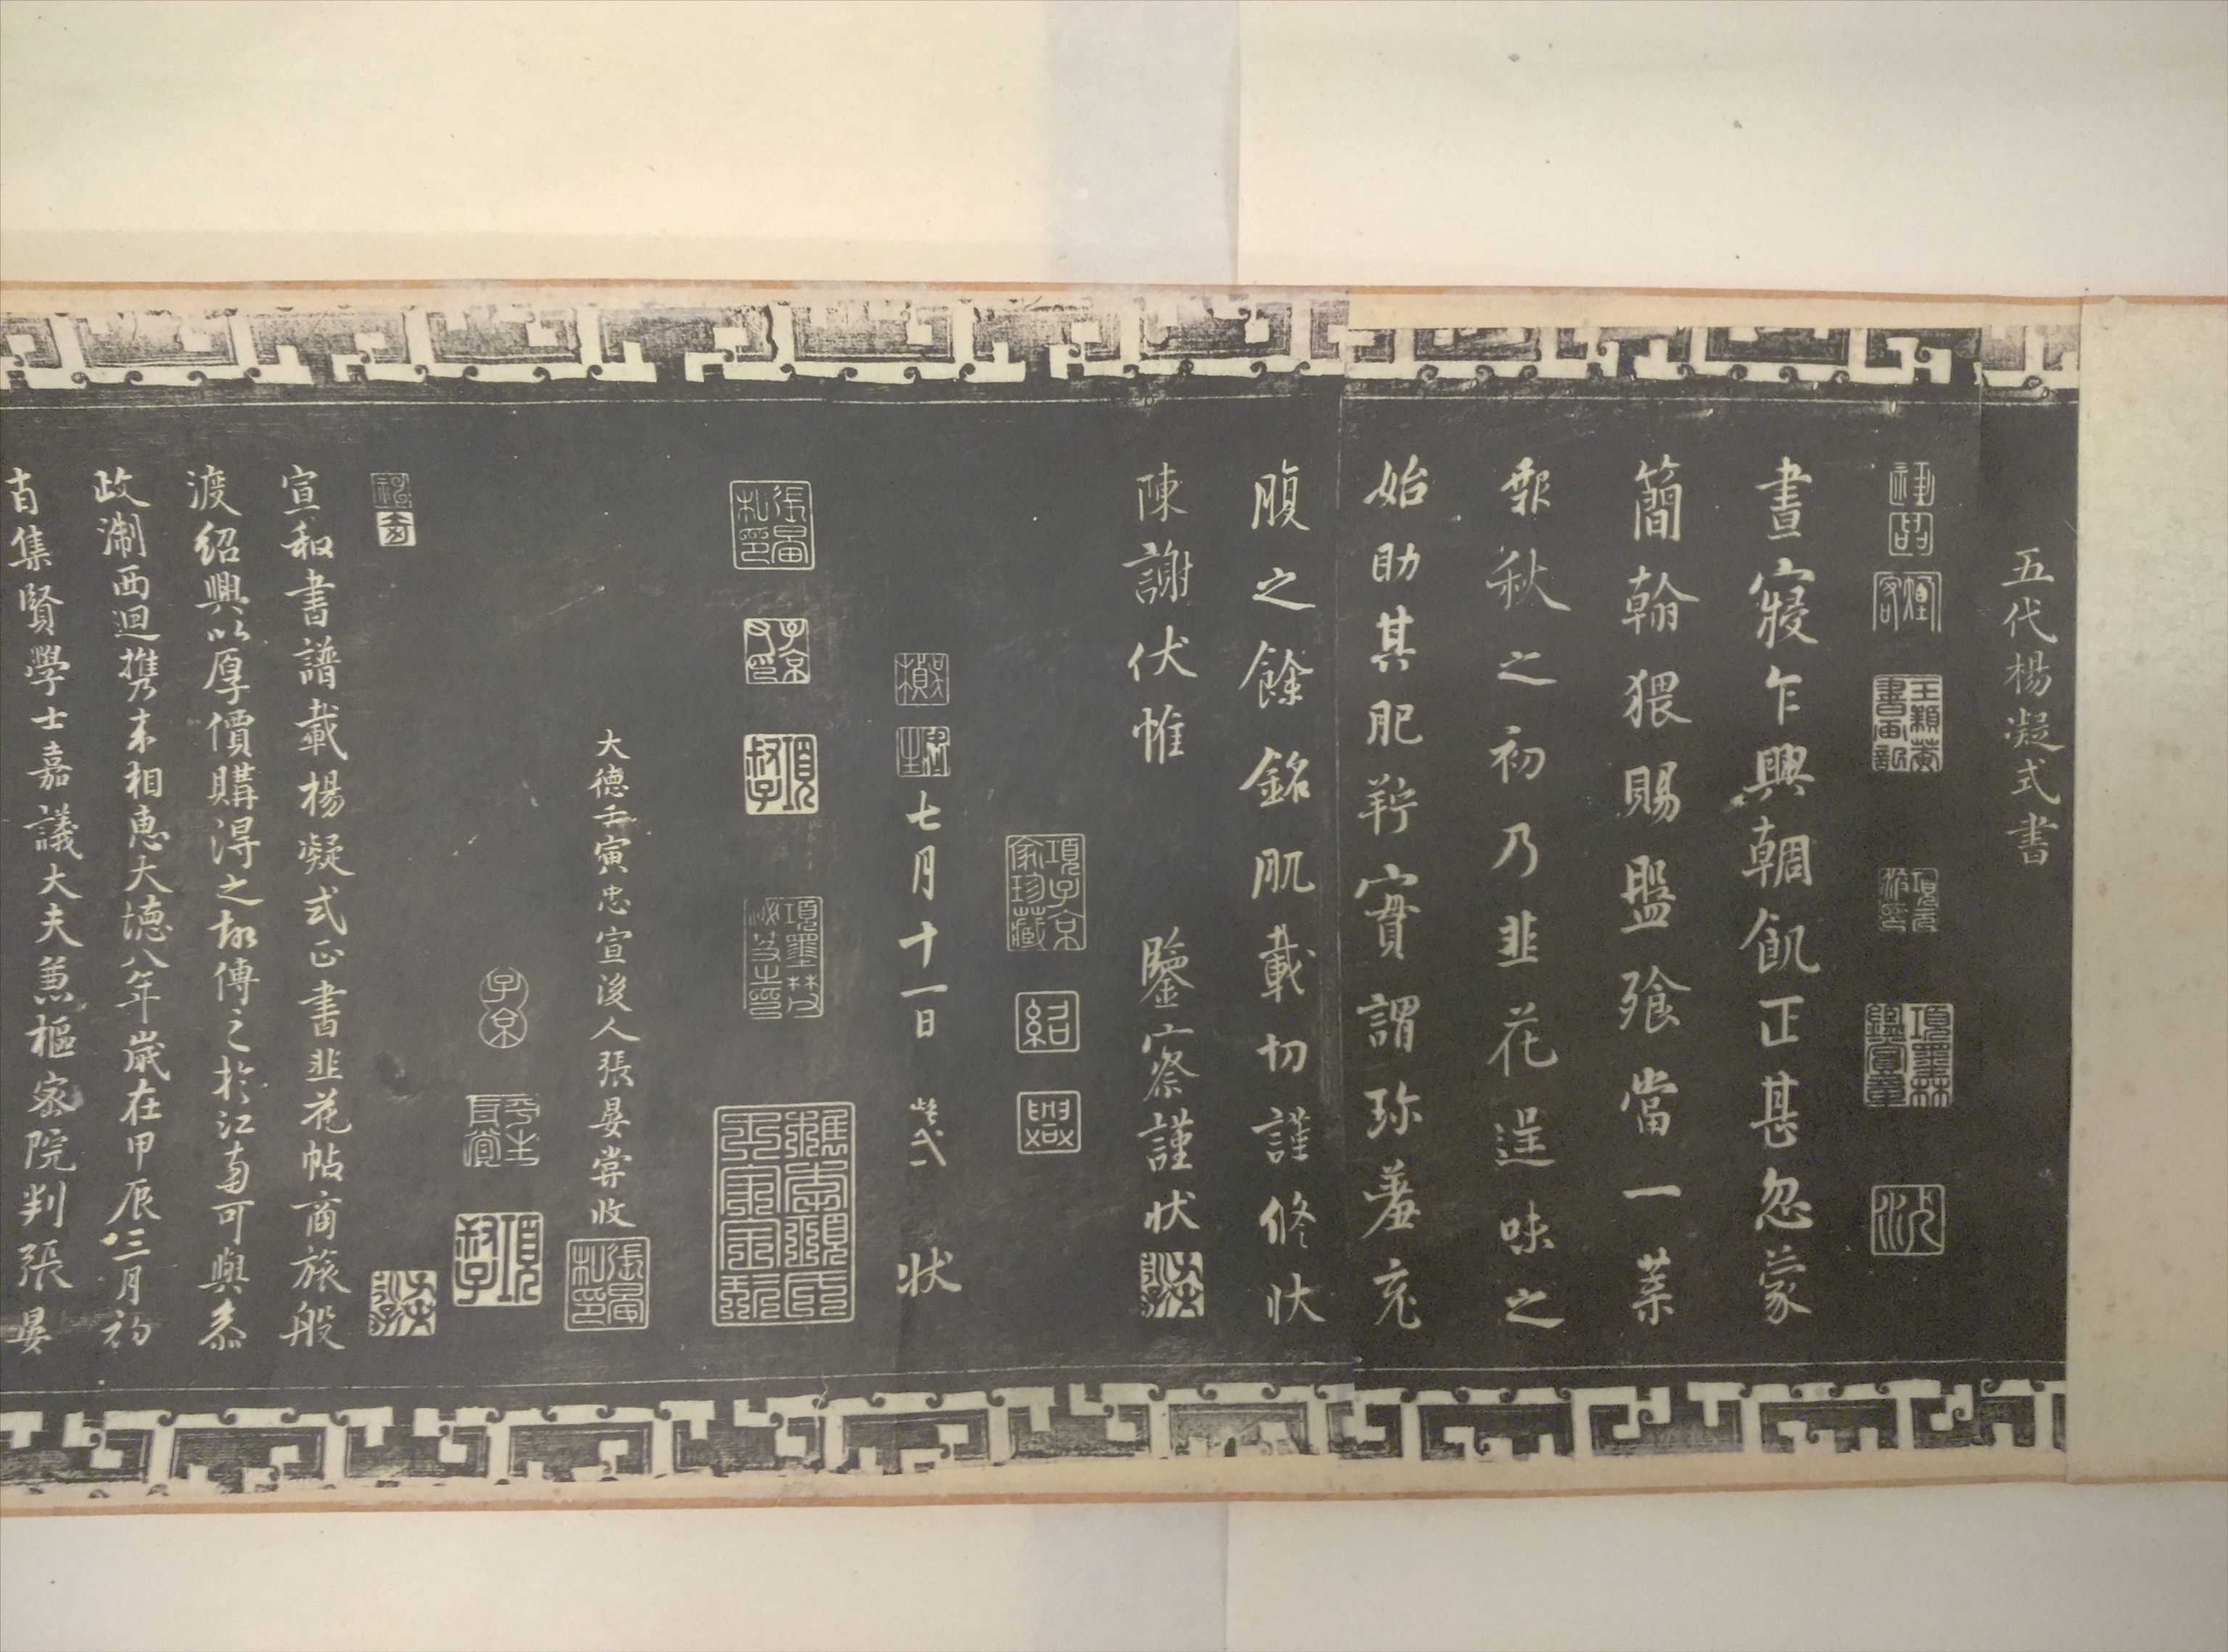 五代楊凝式書
晝寢乍興輖飢正甚忽蒙
簡翰猥賜盤飧當一葉
報秋之初乃韭花逞味之
始助其肥羜實謂珍羞充
腹之餘銘肌載切謹修狀
陳謝伏惟 鑒察謹狀
項子京家珍藏
紹興
七月十一日 狀
張晏私印
項叔子
項墨林
大德壬寅忠宣後人張晏嘗收
張晏私印
子京
項叔子
宣和書譜載楊凝式正書韭花帖商旅般
渡紹興以厚價購得之故傳之於江南可與叅
政淛西迴攜來相惠大德八年歲在甲辰三月初
吉集賢學士嘉議大夫兼樞密院判張晏